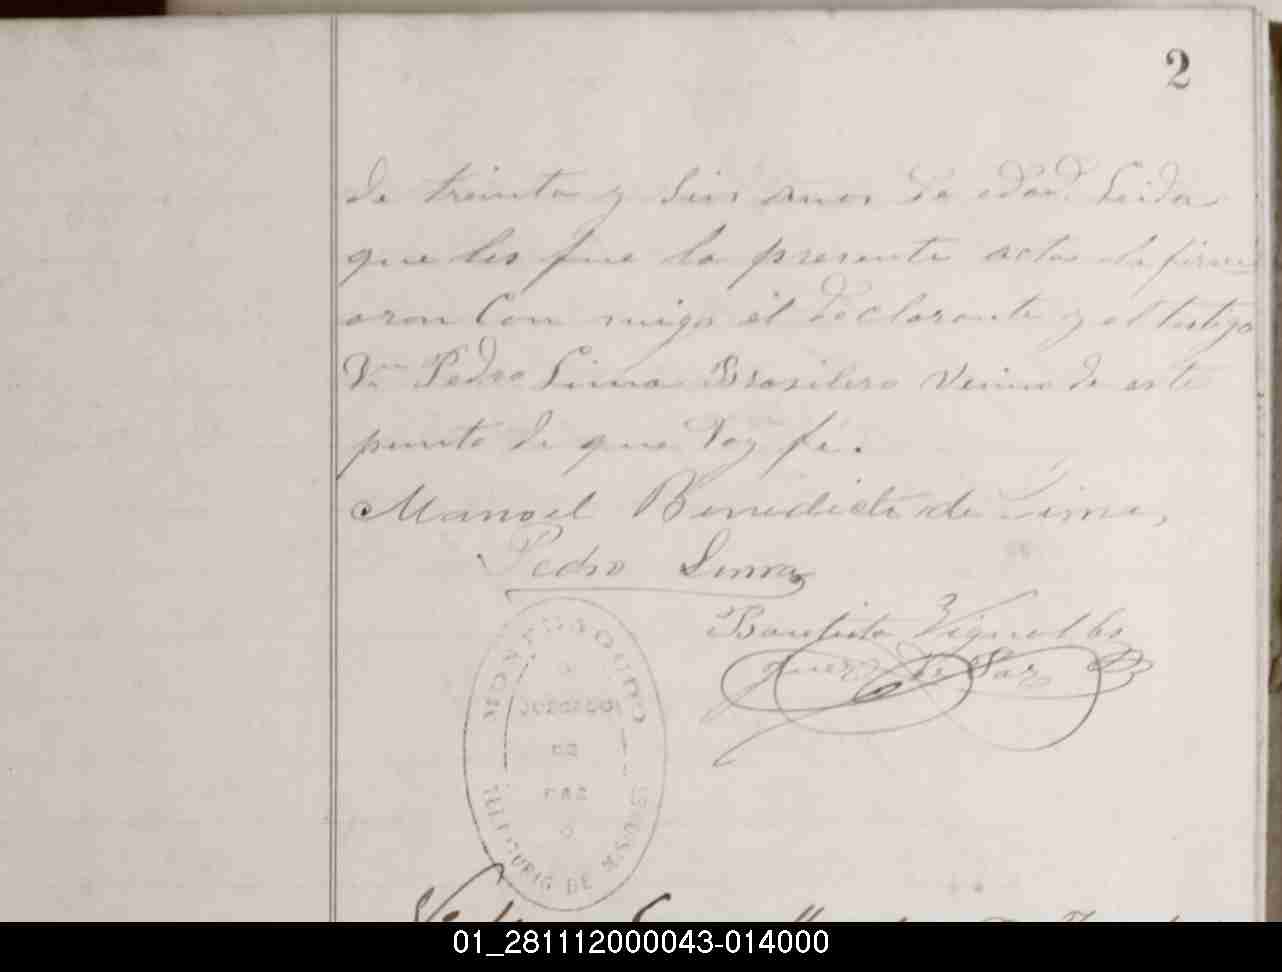 2
de treinta y seis anos de edad. Leida
que les fue la presente acta la firm
aron Con migo el declarante y el testigo
Dn Pedro Lima Brasilero Vecino de este
punto de que Doy fé.
Manoel Benedicto de Lima,
Pedro Lima
Bautista
Juez de Paz
JUZGADO
DE
PAZ
TERRITORIO DE MISIONES
01_281112000043-014000